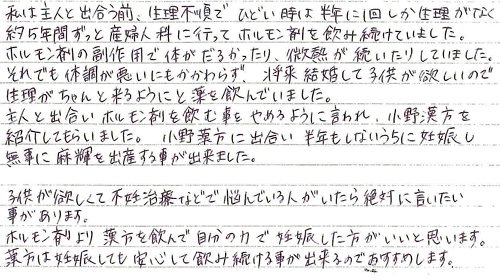 私は主人と出合う前、生理不順で ひどい時は半年に1回しか生理がなく
約5年間ずっと産婦人科に行ってホルモン剤を飲み続けていました。
ホルモン剤の副作用で体がだるかったり、微熱が続いたりしていました。
それでも体調が悪いにもかかわらず、将来結婚して子供が欲しいので
生理がちゃんと来るようにと薬を飲んでいました。
主人と出合いホルモン剤を飲む事をやめるように言われ、小野漢方を
紹介してもらいました。 小野薬方に出合い半年もしないうちに妊娠し
無事に麻輝を出産する事が出来ました。
子供が欲しくて不妊治療などで悩んでいる人がいたら絶対に言いたい
事があります。
ホルモン剤より漢方を飲んで自分の力で妊娠した方がいいと思います。
漢方は妊娠しても安心して飲み続ける事が出来るのでおすすめします。